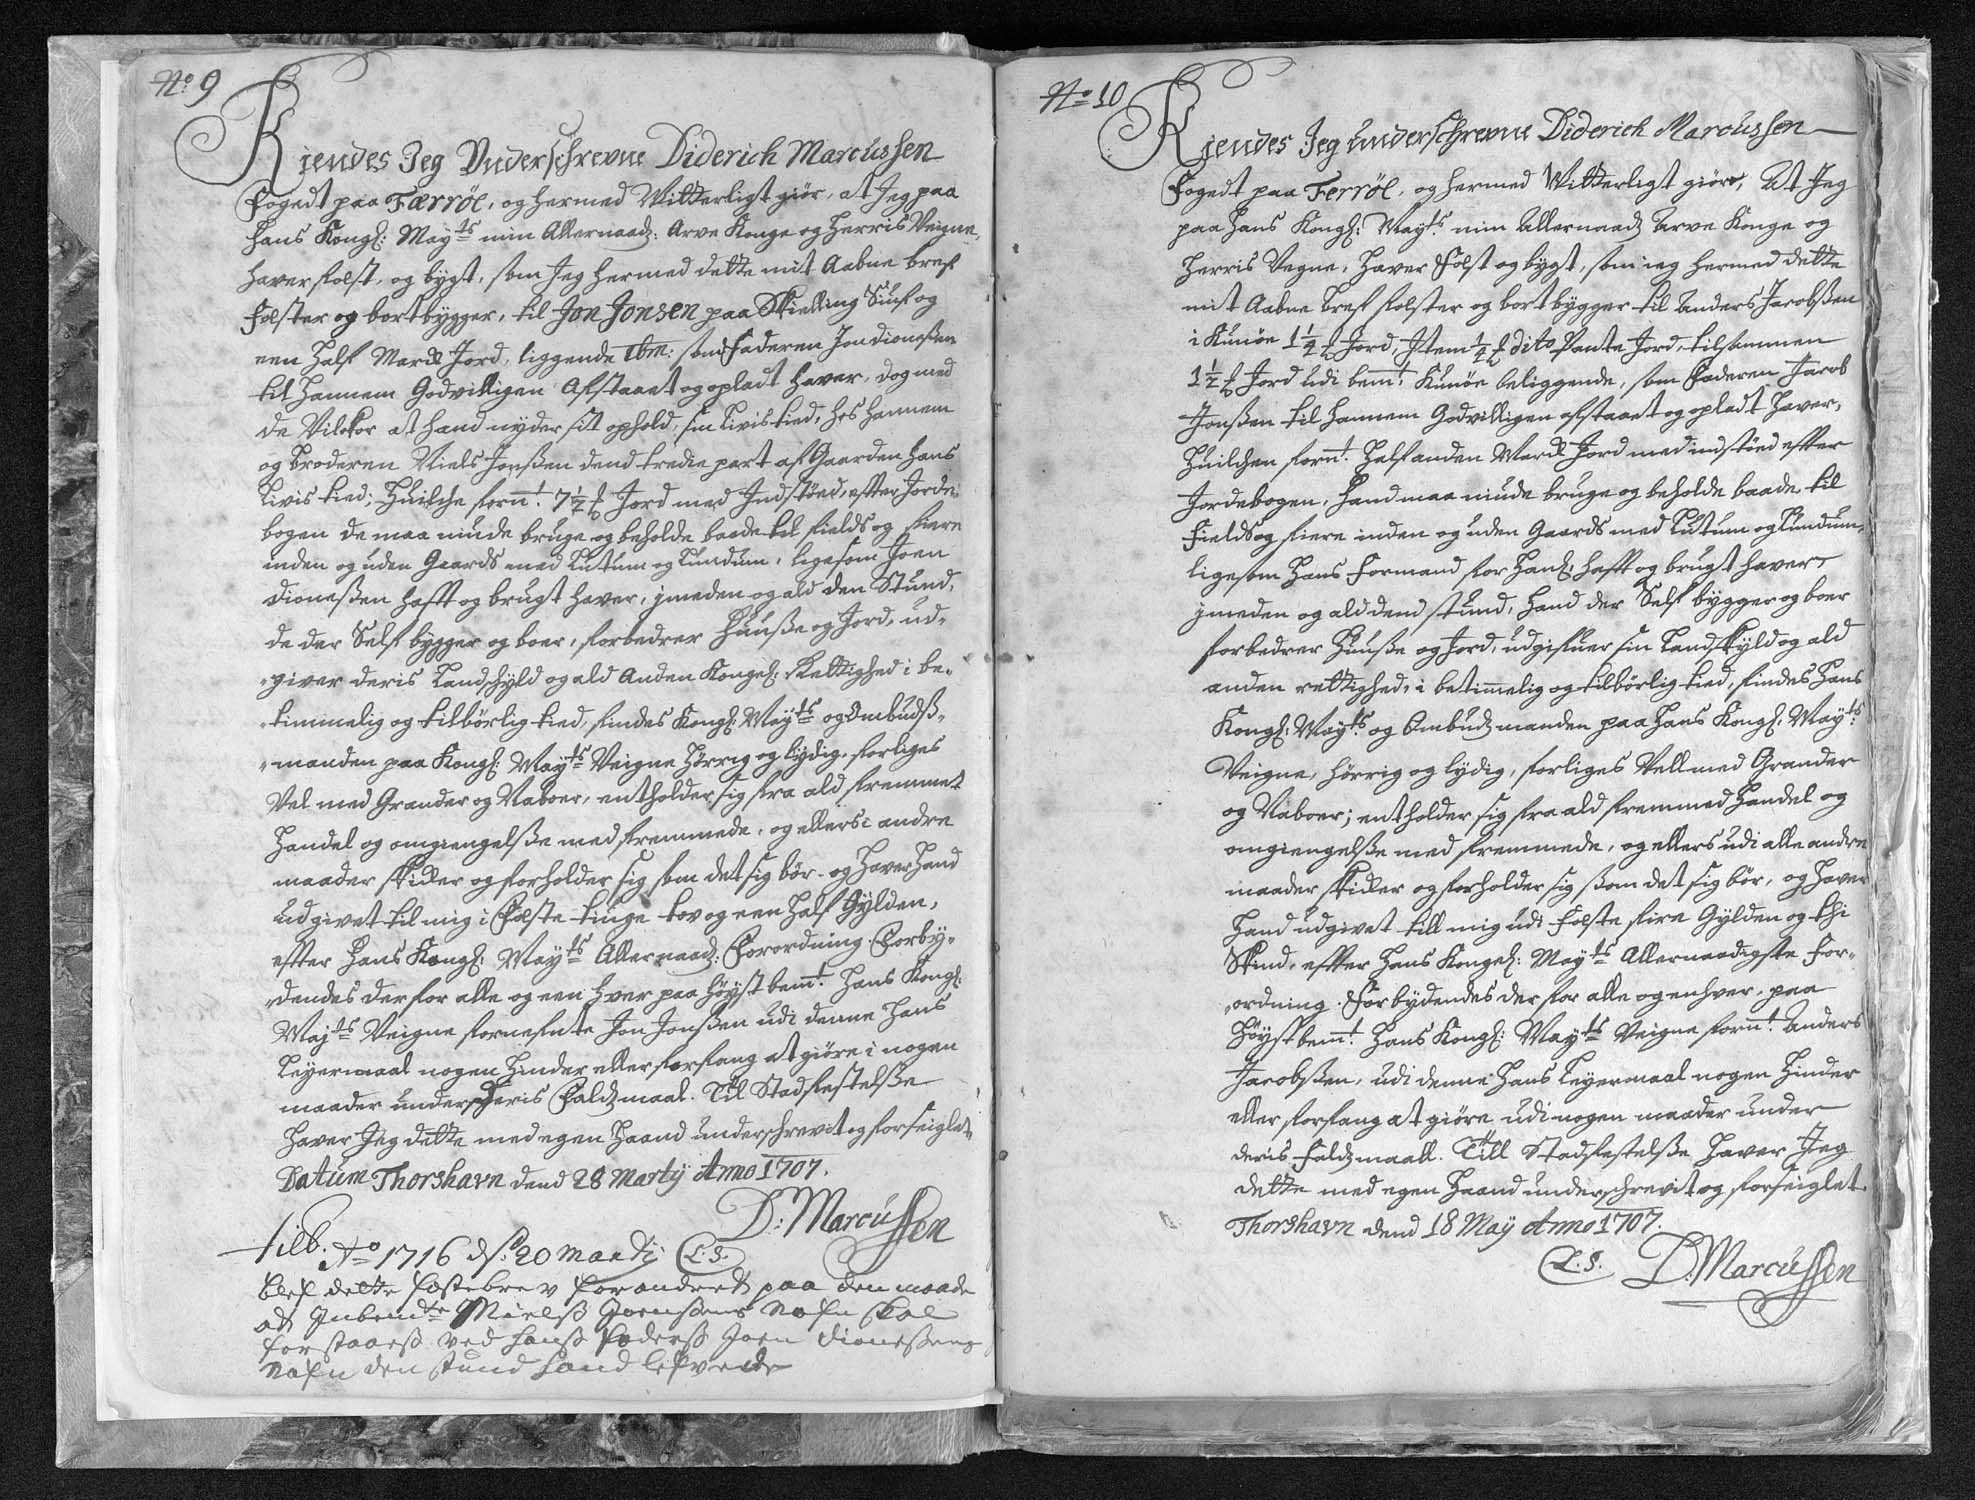 No 9
Kiendes Jeg Underschrevne Diderich Marcussen
Fogedt paa Færröe, og hermed Witterligt giör, at Jeg paa
Hans Kongl: Mayts min Allernaads: Arve Konge og Herris Veigne,
haver fæst, og bygt, som Jeg hermed dette mit Aabne bref
fæster og bortbygger, til Jon Jonsen paa Skielling
een half Mark Jord, liggende ibm: som Faderen Jon Dionessen
til hannem Godvilligen afstaaet og opladt haver, dog med
de Vilkor at hand nyder sit ophold, sin Livis tied, hos hannem
og broderen Niels Jonssen dend tredie part af Gaarden hans
Livis tied; Huilche fornt: 7½ Jord med Indstöed, efter Jorde-
bogen de maa niude bruge og beholde baade til fields og fiære
inden og uden Gaards med Lutum og Lundum, ligesom Joen
Dionessen hafft og brugt haver, jmeden og ald den Stund,
de der Self bygger og boer, forbedrer Huusse og Jord, ud-
giver deris Landschyld og ald Anden Kongel: Rettighed i be-
timmelig og tilbörlig tied, findes Kongl: Mayts og Ombuds-
manden paa Kongl: Mayts Veigne hörrig og lydig, forliges
Vel med Grander og Naboer, entholder sig fra ald fremmet
Handel og omgiengelsse med fremmede, og ellers i andre
maader skicker og forholder sig som det sig bör. og haver hand
udgivet til mig i Fæste tinge tov og een half Gylden,
efter Hans Kongl: Mayts Allernaads: Forordning. Forby-
dendes derfor alle og een hver paa höyst bemt: Hans Kongl:
Majts Veigne fornefnte Jon Jonssen udi denne hans
Leyermaal nogen hinder eller forfang at giöre i nogen
maader under deris Faldsmaal. Til Stadfestelsse
haver Jeg dette med egen Haand underschrevit og forseiglet,
Datum Thorshavn dend 28 Martij Anno 1707.
D: Marcussen
L.S.
Ao 1716 d: 20 Martij
blef dette fæstebrev forandret paa den maade
at Niels Joenssens Nafn skal
forstaaes ved hans faders Joen Dionessens
Nafn den stund hand lefvede
No 10
Kiendes Jeg underschrevne Diderich Marcussen
Fogedt paa Ferröe, og hermed Witterligt giör, At Jeg
paa Hans Kongl: Mayts: min Allernaads Arve Konge og
Herris Vegne, haver Fæst og bygt, som ieg hermed dette
mit Aabne bref fæster og bortbygger til Anders Jacobssen
i Kunöe 1½ Jord, Item ½ dito Pante Jord, tilsammen
1½ Jord udi bemt: Kunöe beliggende, som Faderen Jacob
Jonssen til hannem Godvilligen afstaaet og opladt haver,
Huilchen fornt: halfanden Mark Jord med indstöed efter
Jordebogen, hand maa niude bruge og beholde baade til
Fields og fiere inden og uden Gaards med Lutum og Lundum,
ligesom hans Formand for hans hafft og brugt haver,
jmeden og ald dend stund, hand der Self bygger og boer
forbedrer Huusse og Jord, udgifuer sin Landskyld og ald
anden rettighed, i betimmelig og tilbörlig tied, findes Hans
Kongl: Mayts: og Ombudsmanden paa Hans Kongl: Mayts:
Veigne, hörrig og lydig, forliges Vell med Grander
og Naboer; entholder sig fra ald fremmed Handel og
omgiengelsse med fremmede, og ellers udi alle andre
maader skicker og forholder sig som det sig bör, og haver
hand udgivet till mig udi fæste fire Gylden og thi
Skind, efter Hans Kongel: Mayts Allernaadigste For-
ordning. Forbydendes derfor alle og enhver, paa
höyst bemt: Hans Kongl: Mayts Veigne fornt: Anders
Jacobssen, udi denne hans Leyermaal nogen hinder
eller forfang at giöre udi nogen maader under
deris Faldsmaall. Till Stadfestelsse haver Jeg
dette med egen Haand underschrevit og forseiglet
Thorshavn dend 18 May Anno 1707.
L.S. D: Marcussen